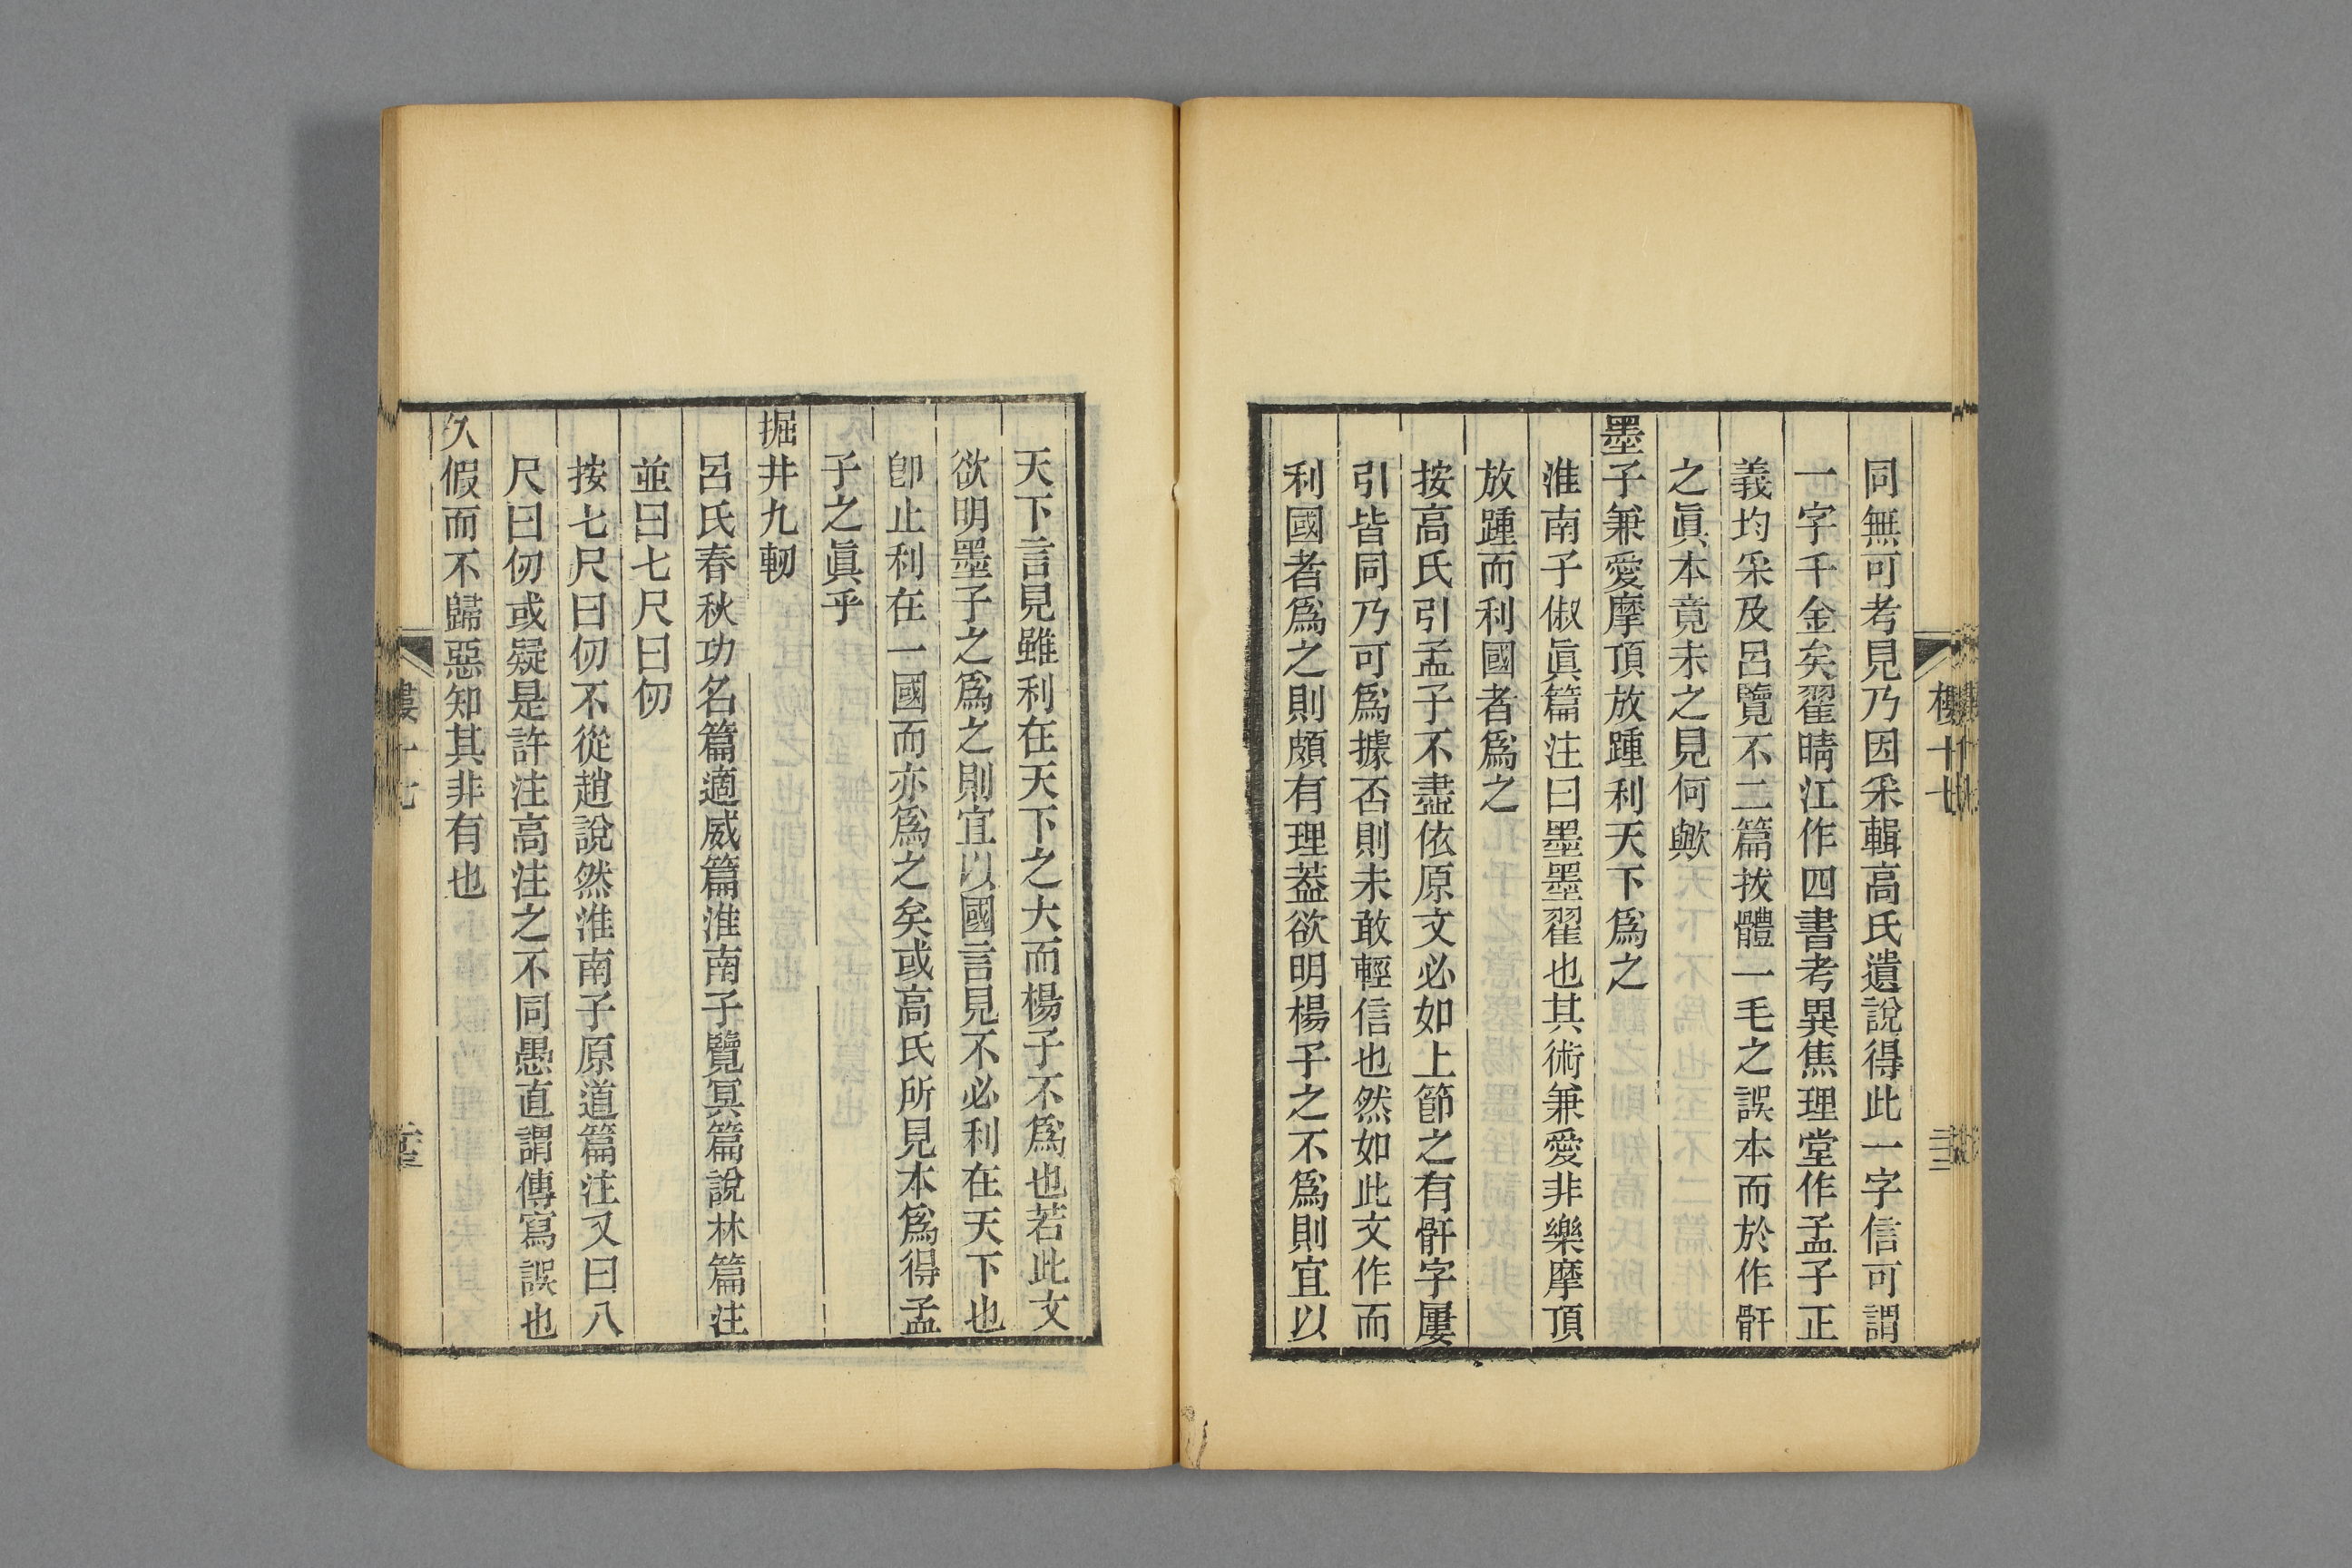 同無可考見乃因采輯高氏遺說得此一字信可謂
一字千金矣翟晴江作四書考異焦理堂作孟子正
義均采及呂覽不二篇拔體一毛之誤本而於作骭
之眞本竟未之見何歟
墨子兼愛摩頂放踵利天下爲之
淮南子俶眞篇注曰墨墨翟也其術兼愛非樂摩頂
放踵而利國者爲之
按高氏引孟子不盡依原文必如上節之有骭字屢
引皆同乃可爲據否則未敢輕信也然如此文作而
利國者爲之則頗有理葢欲明楊子之不爲則宜以
天下言見雖利在天下之大而楊子不爲也若此文
欲明墨子之爲之則宜以國言見不必利在天下也
卽止利在一國而亦爲之矣或高氏所見本爲得孟
子之眞乎
掘井九軔
呂氏春秋功名篇適威篇淮南子覽冥篇說林篇注
並曰七尺曰仞
按七尺曰仞不從趙說然淮南子原道篇注又曰八
尺曰仞或疑是許注高注之不同愚直謂傳寫誤也
久假而不歸惡知其非有也